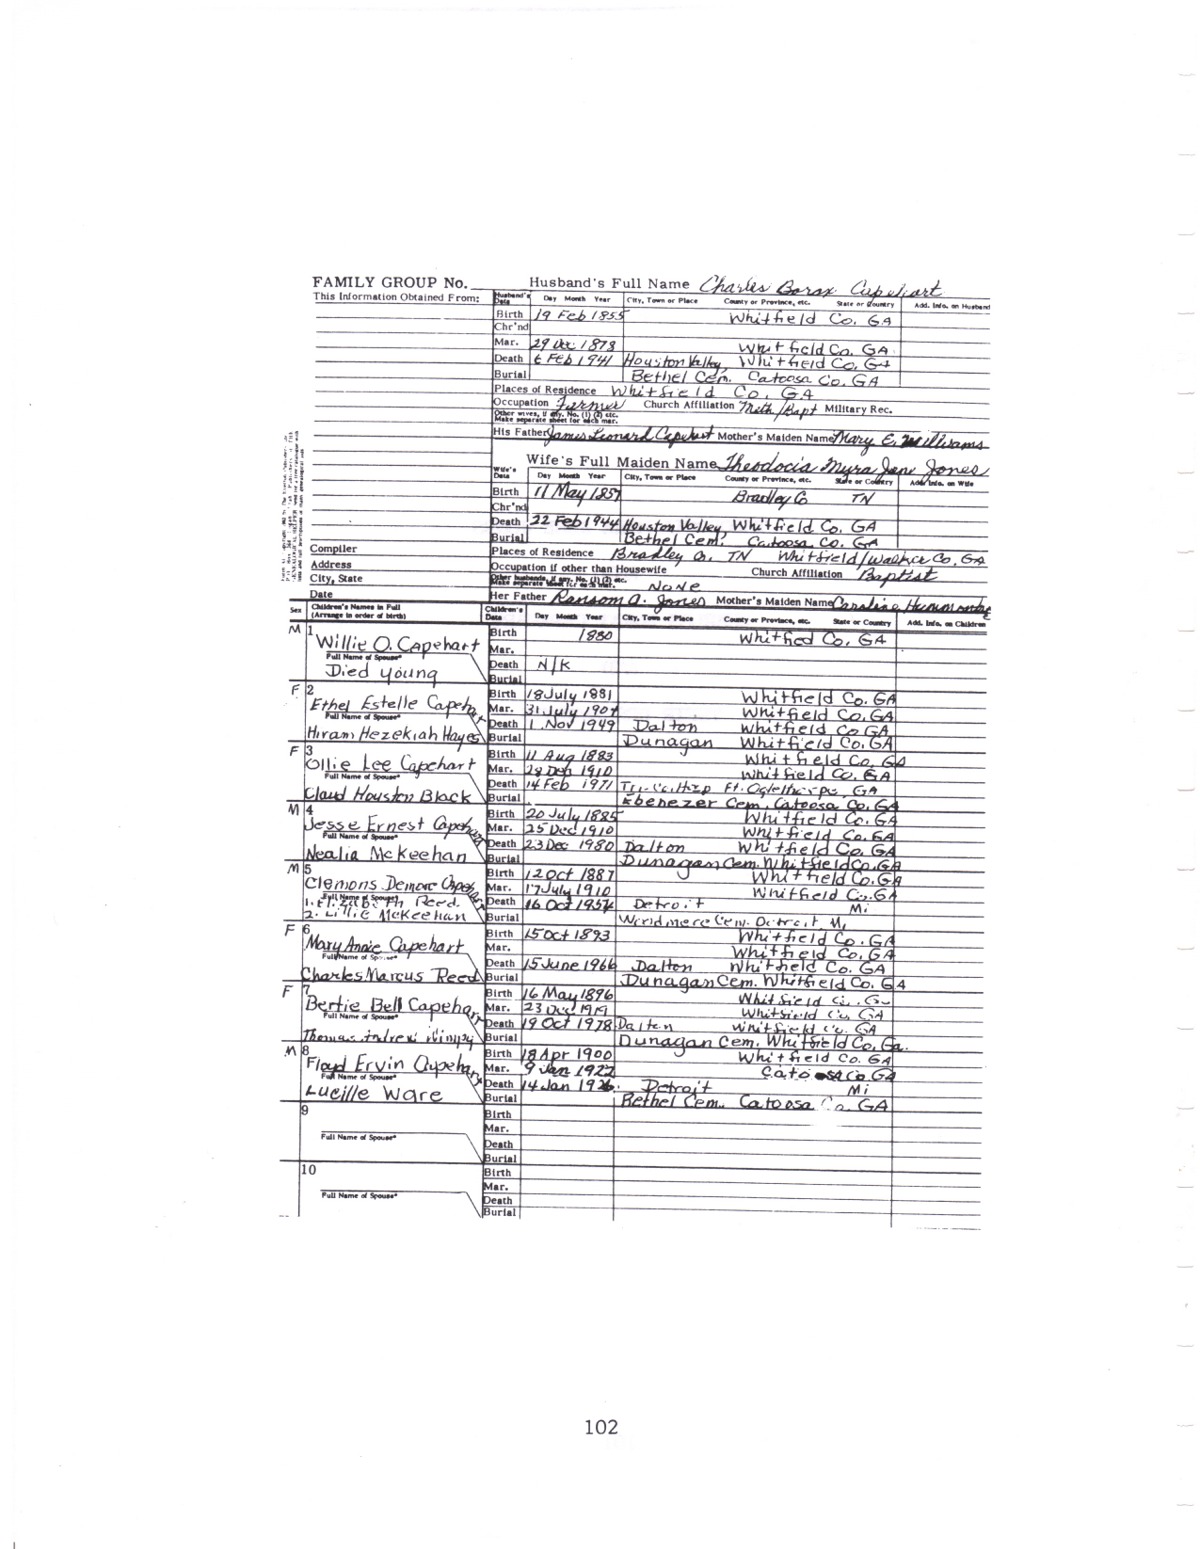 FAMILY GROUP No. Husband's Full Name Charles Borax Capehart
This Information Obtained From: Husband's Data Day Month Year City, Town or Place County or Province, etc. State or Country Add. Info. on Husband
Birth 19 Feb 1855 Whitfield Co. GA
Chr'nd
Mar. 29 Dec 1878 Whitfield Co. GA
Death 6 Feb 1941 Houston Valley, Whitfield Co, GA
Burial Bethel Cem. Catoosa Co. GA
Places of Residence Whitfield Co, GA
Occupation Farmer Church Affiliation Meth/Bapt Military Rec.
Other wives, if any. No. (1) (2) etc.
Make separate sheet for each mar.
His Father James Leonard Capehart Mother's Maiden Name Mary E. Williams
Wife's Full Maiden Name Theodocia Myra Jane Jones
Wife's Data Day Month Year City, Town or Place County or Province, etc. State or Country Add. Info. on Wife
Birth 11 May 1857 Bradley Co TN
Chr'nd
Death 22 Feb 1944 Houston Valley, Whitfield Co. GA
Burial Bethel Cem. Catoosa Co. GA
Compiler Places of Residence Bradley Co. TN Whitfield/Walker Co, GA
Address Occupation if other than Housewife Church Affiliation Baptist
City, State Other husbands, if any. No. (1) (2) etc.
Make separate sheet for each mar. None
Date Her Father Ransom A. Jones Mother's Maiden Name Caroline
Sex Children's Names in Full
(Arrange in order of birth) Children's Data Day Month Year City, Town or Place County or Province, etc. State or Country Add. Info. on Children
M 1 Birth 1880 Whitfied Co, GA
Willie O. Capehart Mar.
Full Name of Spouse* Death N/K
Died young Burial
F 2 Birth 18 July 1881 Whitfield Co. GA
Ethel Estelle Capehart Mar. 31 July 1904 Whitfield Co. GA
Full Name of Spouse* Death 1 Nov 1949 Dalton Whitfield Co GA
Hiram Hezekiah Hayes Burial Dunagan Whitfield Co. GA
F 3 Birth 11 Aug 1883 Whitfield Co, GA
Ollie Lee Capehart Mar. 1910 Whitfield Co, GA
Full Name of Spouse* Death 14 Feb 1971 Ft. Oglethorpe, GA
Claud Houston Black Burial Ebenezer Cem. Catoosa Co. GA
M 4 Birth 20 July 1885 Whitfield Co. GA
Jesse Ernest Capehart Mar. 25 Dec 1910 Whitfield Co. GA
Full Name of Spouse* Death 23 Dec 1980 Dalton Whitfield Co. GA
Nealia McKeehan Burial Dunagan Cem. Whitfield Co. GA
M 5 Birth 12 Oct 1887 Whitfield Co. GA
Clemons Demore Capehart Mar. 17 July 1910 Whitfield Co. GA
Full Name of Spouse*
1. Elizabeth Reed. Death 16 Oct 1957 Detroit Mi
2. Lillie McKeehan Burial Woodmere Cem. Detroit Mi
F 6 Birth 15 Oct 1893 Whitfield Co. GA
Mary Annie Capehart Mar. Whitfield Co, GA
Full Name of Spouse* Death 15 June 1966 Dalton Whitfield Co. GA
Charles Marcus Reed Burial Dunagan Cem. Whitfield Co. GA
F 7 Birth 16 May 1896 Whitfield Co. GA
Bertie Bell Capehart Mar. 23 Dec Whitfield Co GA
Full Name of Spouse* Death 19 Oct 1978 Dalton Whitfield Co. GA
Thomas Andrew Burial Dunagan Cem. Whitfield Co, Ga.
M 8 Birth 18 Apr 1900 Whitfield Co. GA
Floyd Ervin Capehart Mar. 9 Jan 1922 Catoosa Co GA
Full Name of Spouse* Death 14 Jan 1926 Detroit Mi
Lucille Ware Burial Bethel Cem. Catoosa Co. GA
9 Birth
Mar.
Full Name of Spouse* Death
Burial
10 Birth
Mar.
Full Name of Spouse* Death
Burial
102